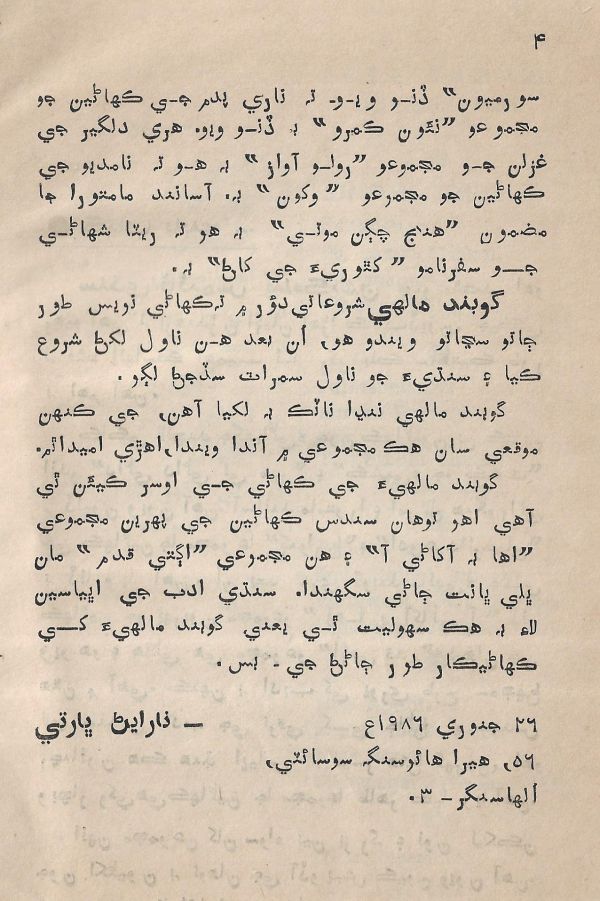 ۴
سورميون” ڏنو ويو۔ تہ ناري پدم جي ڪهاڻين جو
مجموعو ”نئون ڪمرو“ بہ ڏنو ويو. هري دلگير جي
غزلن جو مجموعو ”رولو آواز“ بہ هو تہ نامديو جي
ڪهاڻين جو مجموعو ”وڪون“ بہ. آسانند مامتورا جا
مضمون ”هنڄ چڳن موتي“ بہ هو تہ ريٽا شهاڻي
جو سفرنامو ”ڪٿوريءَ جي کاڻ“ بہ.
گوبند مالهي شروعاتي دؤر ۾ تہ ڪهاڻي نويس طور
ڄاتو سڃاتو ويندو هو، اُن بعد هن ناول لکڻ شروع
ڪيا ۽ سنڌيءَ جو ناول سمراٽ سڏجڻ لڳو.
گوبند مالهي ننڍا ناٽڪ بہ لکيا آهن، جي ڪنهن
موقعي سان هڪ مجموعي ۾ آندا ويندا، اهڙي اميد اٿم.
گوبند مالهيءَ جي ڪهاڻي جي اوسر ڪيئن ٿي
آهي اهو توهان سندس ڪهاڻين جي پهرين مجموعي
”اها بہ آکاڻي آ“ ۽ هن مجموعي ”اڳتي قدم“ مان
ڀلي ڀانت ڄاڻي سگهندا. سنڌي ادب جي اڀياسين
لاءِ بہ هڪ سهوليت ٿي يعني گوبند مالهيءَ کي
ڪهاڻيڪار طور ڄاڻڻ جي۔ بس.
۲۶ جنوري ۱۹۸۶ع — نارايڻ ڀارتي
۵۶، هيرا هائوسنگ سوسائٽي،
اُلهاسنگر - ۳.